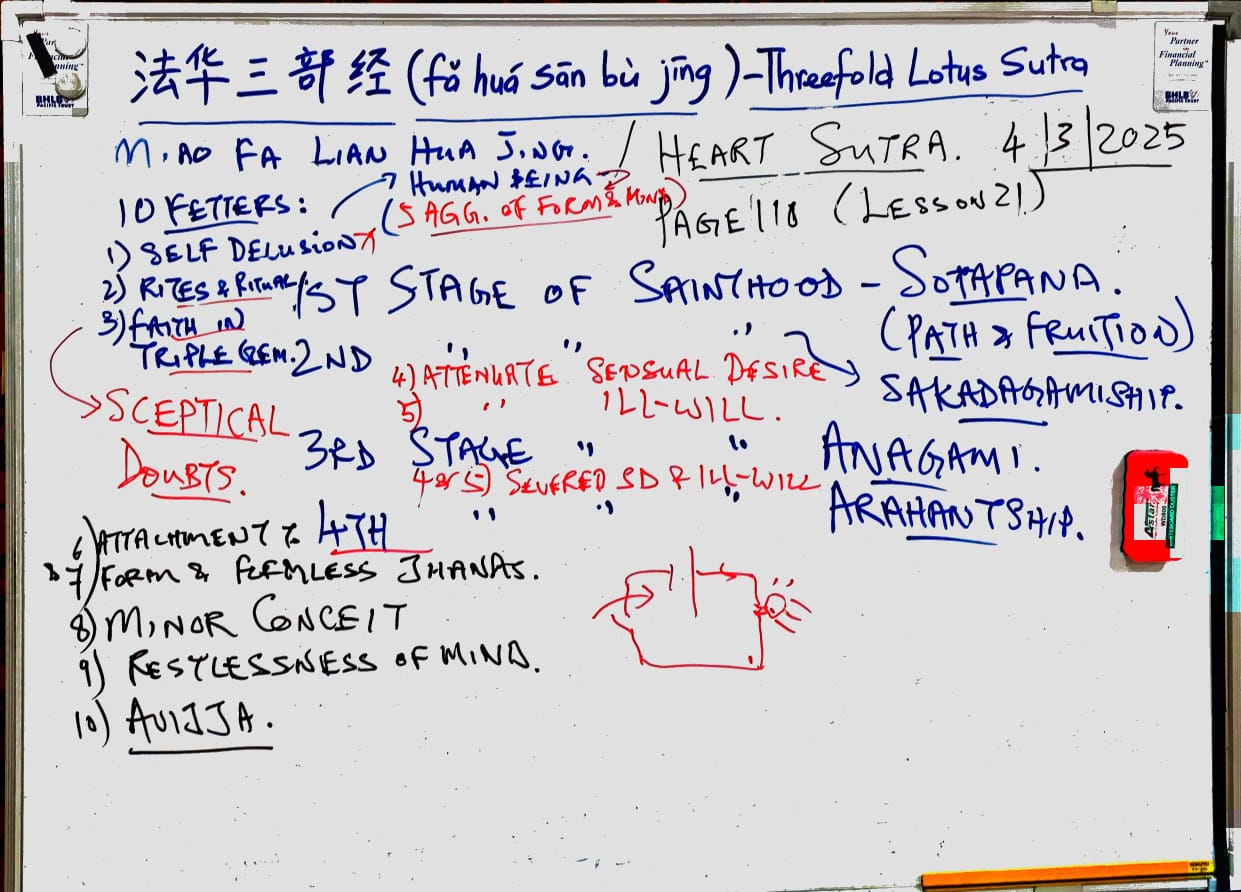 法华三部经 (fǎ huá sān bù jīng) - Threefold Lotus Sutra
MIAO FA LIAN HUA JING. / HEART SUTRA. 4/3/2025
HUMAN BEING
10 FETTERS: (5 AGG. OF FORM & MIND) PAGE 118 (LESSON 21)
1) SELF DELUSION
2) RITES & RITUAL / 1ST STAGE OF SAINTHOOD - SOTAPANA.
3) FAITH IN (PATH & FRUITION)
TRIPLE GEM. 2ND " " "
4) ATTENUATE SENSUAL DESIRE SAKADAGAMISHIP.
SCEPTICAL 5) " ILL-WILL.
DOUBTS. 3RD STAGE " " ANAGAMI.
4 & 5) SEVERED SD & ILL-WILL
4TH " " " ARAHANTSHIP.
6) ATTACHMENT
& 7) FORM & FORMLESS JHANAS.
8) MINOR CONCEIT
9) RESTLESSNESS OF MIND.
10) AVIJJA.
Your
Partner
in
Financial
Planning
BHLB
PACIFIC TRUST
BHLB
PACIFIC TRUST
Astar
WHITEBOARD DUSTER